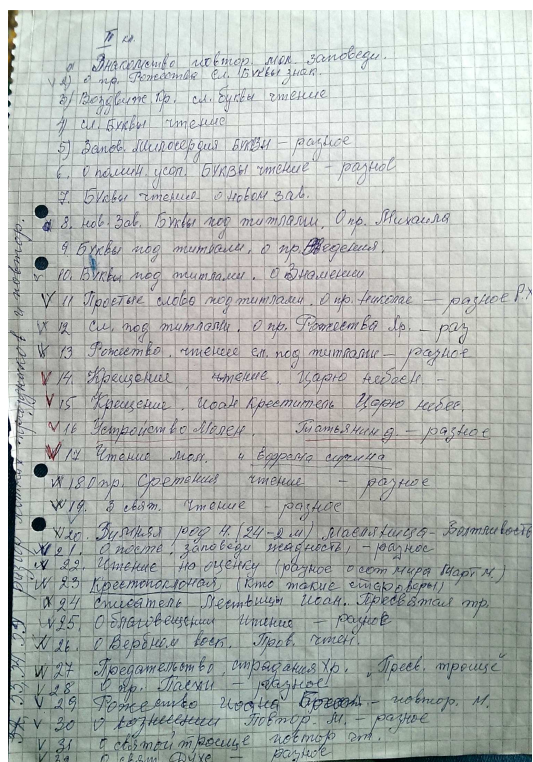 II кл.
1) Знакомство повтор. мол. заповеди.
V 2) О пр. Рожества сл. Буквы знак.
3) Воздвиж. Кр. сл. буквы чтение
4) сл. Буквы чтение
5) Запов. Милосердия Буквы – разное
6. О помин. усоп. Буквы чтение – разное
7. Буквы чтение о новом Зав.
8. нов. Зав. Буквы под титлами. О пр. Михаила
9 Буквы под титлами. о пр. Введения.
10. Буквы под титлами. о Знамении
V 11 Простые слова под титлами. О пр. Николае – разное Р.Х
V 12 сл. под титлами. о пр. Рожества Хр. – раз
V 13 Рожество. чтение сл. под титлами – разное
V 14. Крещение, чтение. Царю небесн –
V 15. Крещение. Иоан Креститель Царю небес.
V 16 Устройство Молен. Татьянин д. – разное
V 17 Чтение мол. и Ефрема сирина
V 18 О пр. Сретения чтение – разное
V 19. 3 свят. чтение – разное
V 20. Зимняя род. н. (24-2 м) Масляница –
V 21. О посте, заповеди жадность) – разное
V 22. Чтение на оценку (разное о сот. мира Март м.)
V 23 Крестопоклоная (кто такие староверы)
V 24 списатель Лествицы Иоан. Пресвятая тр.
V 25. О благовещении чтение – разное
V 26. О Вербном воск. Пров. чтен.
V 27 Предательство страдания Хр. „Пресв. троице"
V 28 О пр. Пасхи – разное
V 29 Рожество Иоана – повтор. м.
V 30 О вознесении Повтор. М. – разное
V 31 О святой троице повтор чт.
32 О свят Духе – разное
32, 33, 34, 35 разбор житий праздников и повтор.